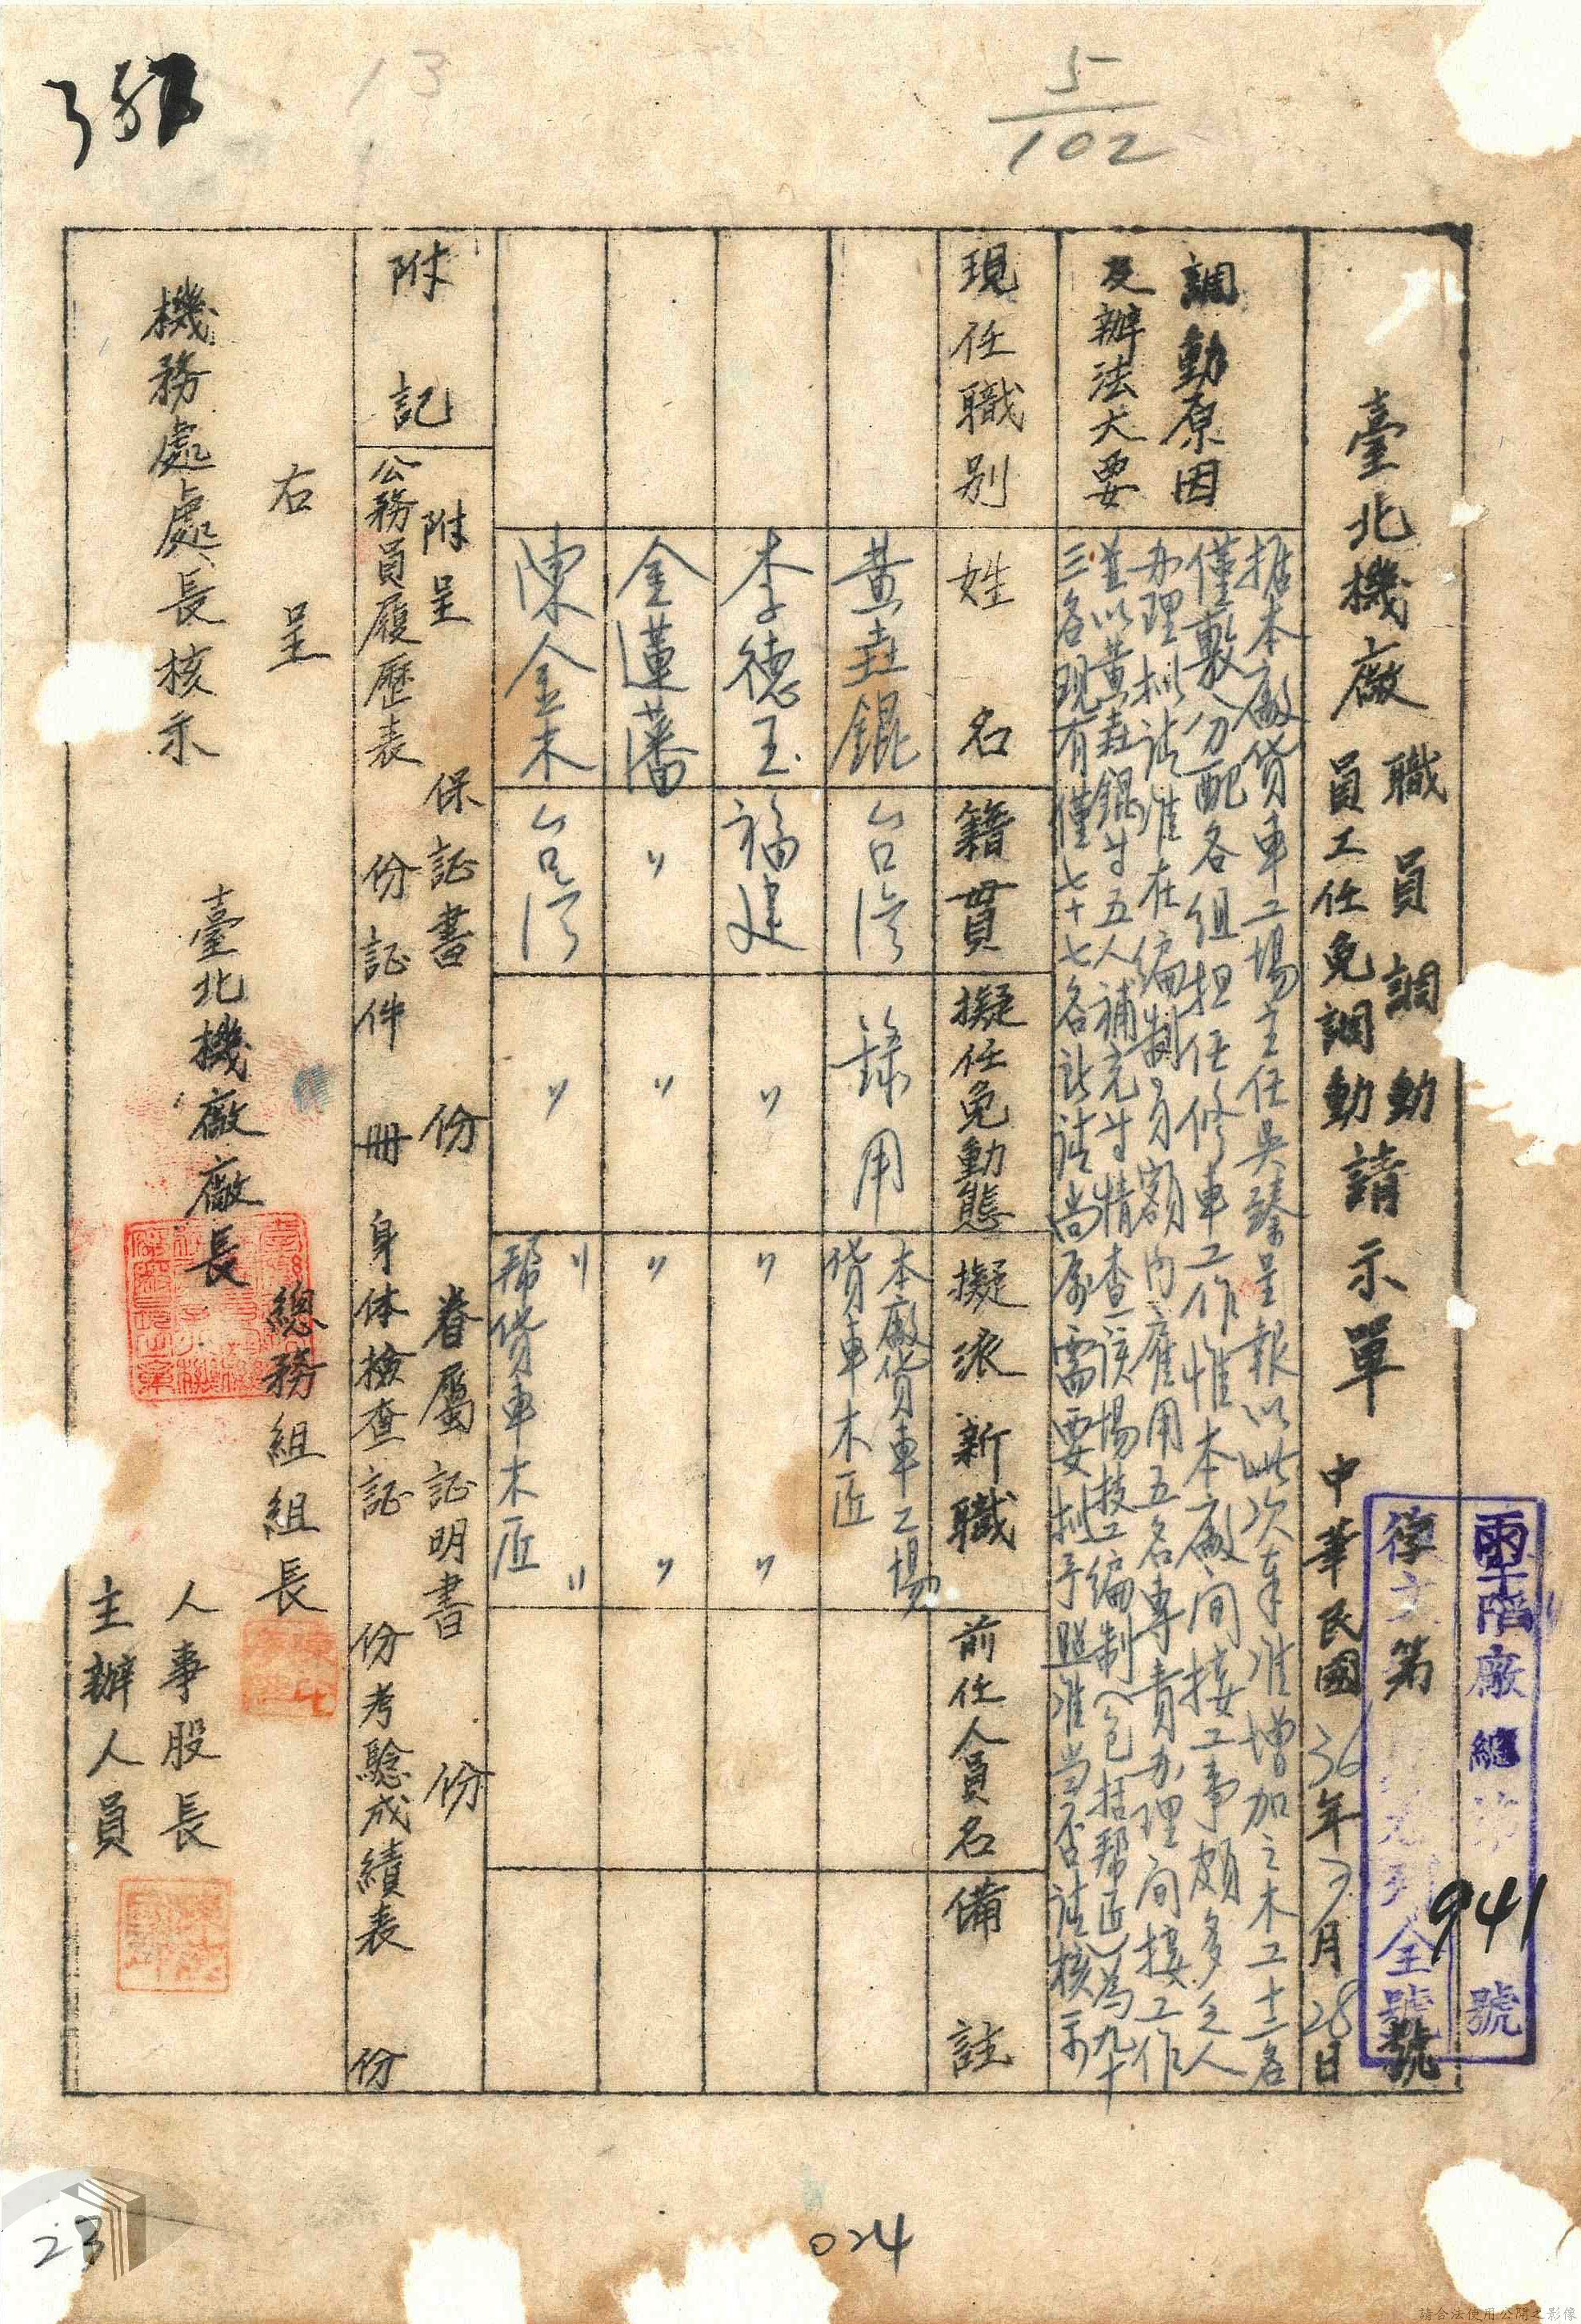 5/102
13
臺北機廠 職員調動 員工任免調動 請示單
中華民國36年3月28日
第 號
廠總 第941號
調動原因
及辦法大要
据本廠貨車工場主任吳臻呈報以此次奉准增加之木工十二名
僅敷分配各組担任修車工作惟本廠间接工事頗多乏人
办理拟請准在编制名額内雇用五名專責办理间接工作
並以黄垚錕等五人補充等情查该場技工编制(包括帮匠)為九十
三名現有僅七十七名所請尚属需要拟予照准当否請核示
現任職別
姓名
籍貫
擬任免動態
擬派新職
前任人員名
備註
黄垚錕 台湾 錄用 本廠貨車工場
貨車木匠
李德玉 福建 〃 〃 〃
金蓮藩 〃 〃 〃 〃
陳金木 台湾 〃 〃 〃
帮貨車木匠
附記
附呈 保証書 份 眷屬証明書 份
公務員履歷表 份 証件 冊 身体檢查証 份 考驗成績表 份
右呈
機務處處長核示
臺北機廠廠長
總務組組長
人事股長
主辦人員
23
024
請合法使用公開之影像